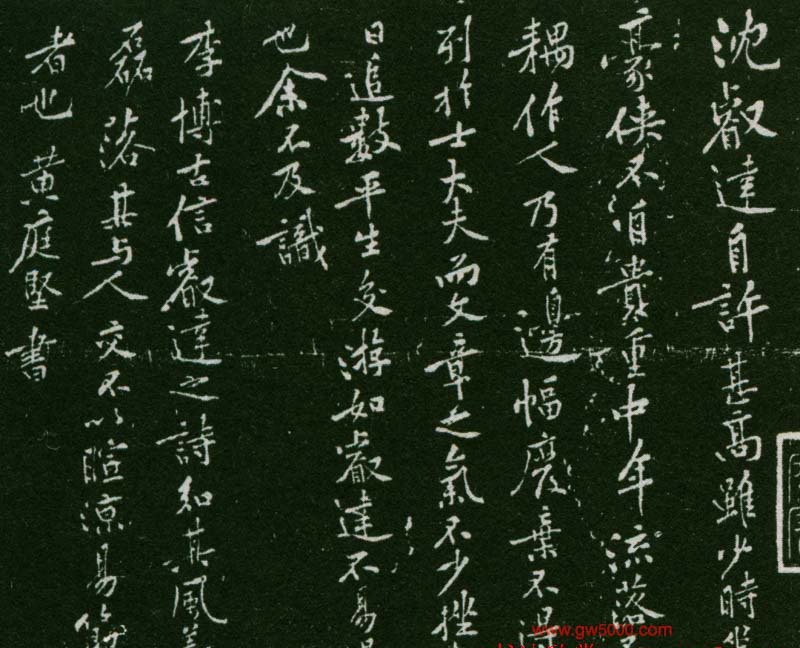 沈叡達自許甚高雖少時
豪俠不自貴重中年流落
耦作人乃有邊幅廢棄不
列於士大夫而文章之氣不少挫
日追數平生交游如叡達不易
也余不及識
李博古信叡達之詩知其風
磊落其與人交不以暄涼易
者也黃庭堅書
www.gw5000.com